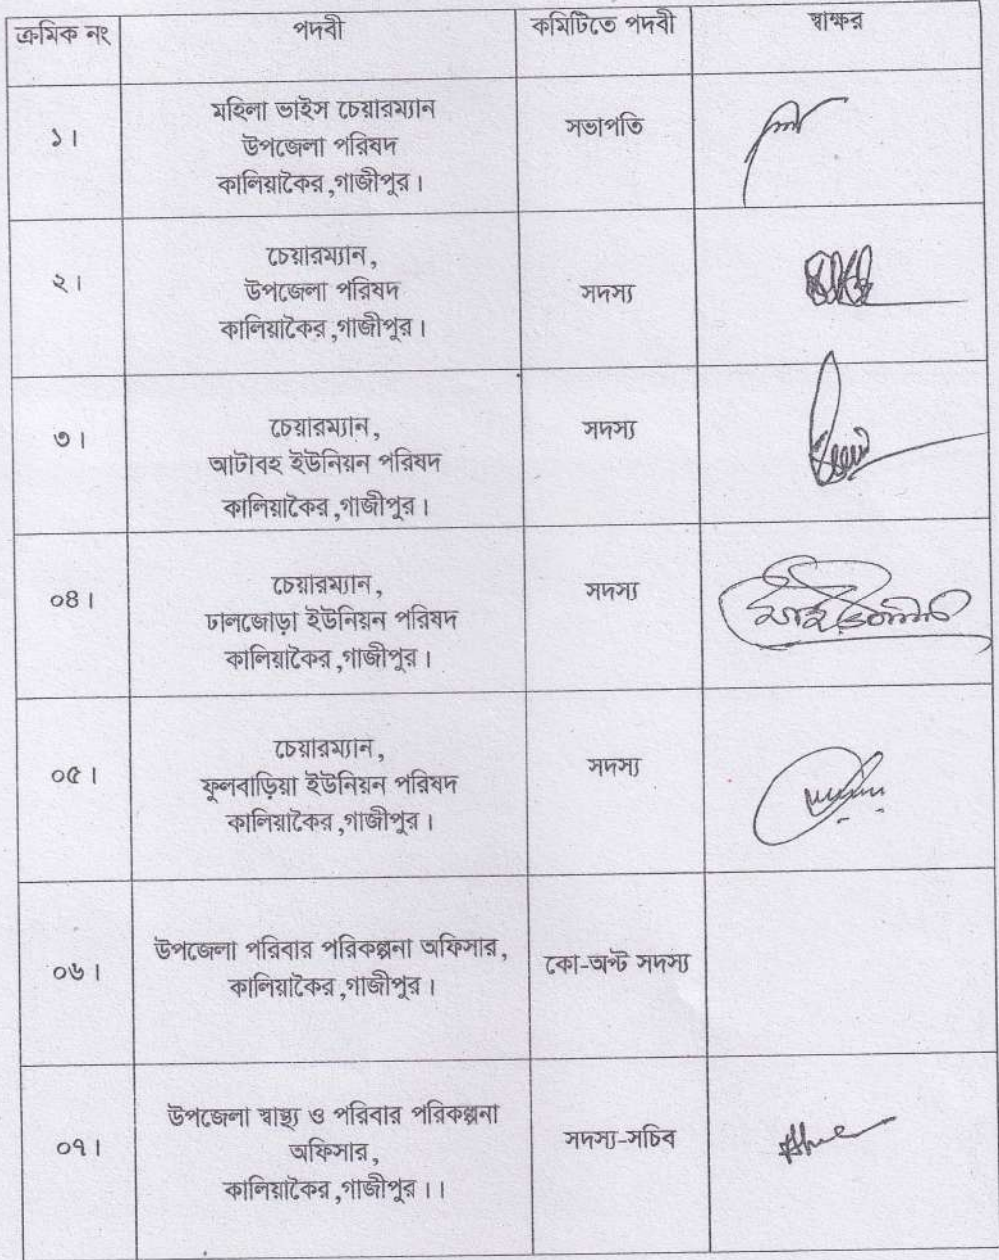 ক্রমিক নং পদবী কমিটিতে পদবী স্বাক্ষর
১। মহিলা ভাইস চেয়ারম্যান
উপজেলা পরিষদ
কালিয়াকৈর ,গাজীপুর। সভাপতি
২। চেয়ারম্যান,
উপজেলা পরিষদ
কালিয়াকৈর ,গাজীপুর। সদস্য
৩। চেয়ারম্যান,
আটাবহ ইউনিয়ন পরিষদ
কালিয়াকৈর ,গাজীপুর। সদস্য
০৪। চেয়ারম্যান,
ঢালজোড়া ইউনিয়ন পরিষদ
কালিয়াকৈর ,গাজীপুর। সদস্য
০৫। চেয়ারম্যান,
ফুলবাড়িয়া ইউনিয়ন পরিষদ
কালিয়াকৈর ,গাজীপুর। সদস্য
০৬। উপজেলা পরিবার পরিকল্পনা অফিসার,
কালিয়াকৈর ,গাজীপুর। কো-অপ্ট সদস্য
০৭। উপজেলা স্বাস্থ্য ও পরিবার পরিকল্পনা
অফিসার,
কালিয়াকৈর ,গাজীপুর।। সদস্য-সচিব